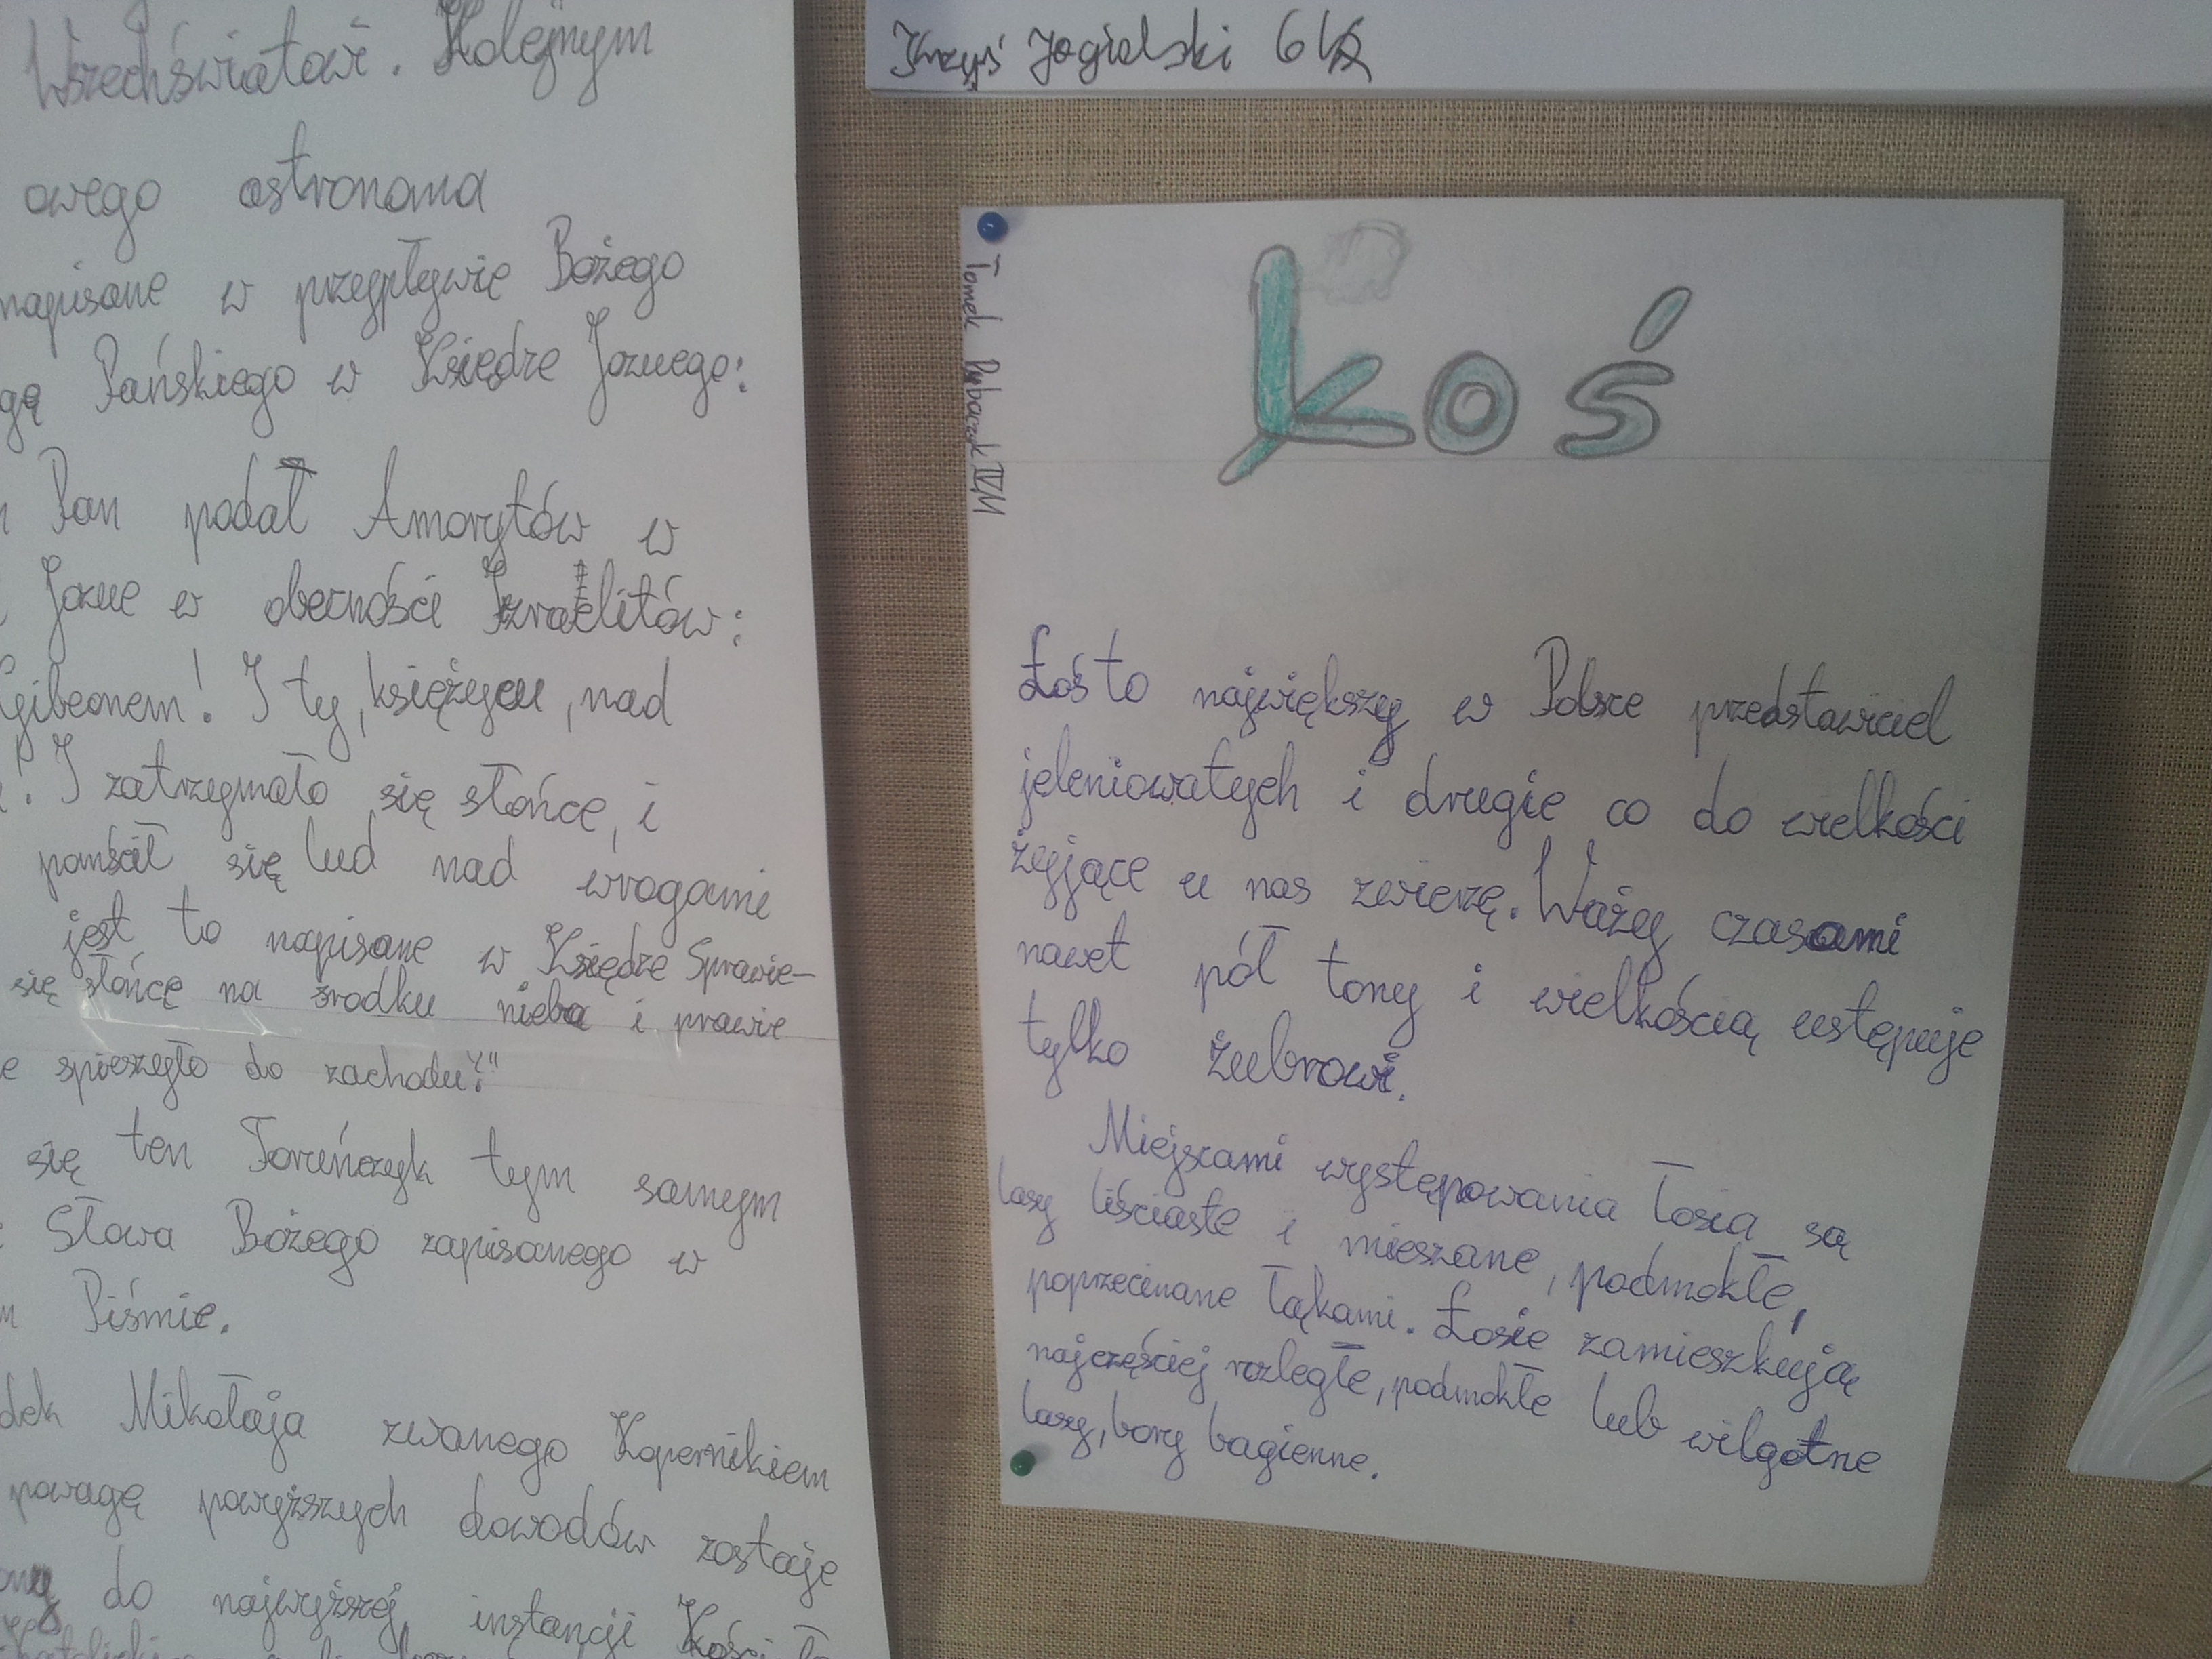 Wszechświatowi. Kolejnym
owego astronoma
napisane w przypływie Bożego
Pańskiego w Księdze Jozuego:
Pan podał Amorytów w
Jozue w obecności Izraelitów:
Gibeonem! I ty, księżycu, nad
! I zatrzymało się słońce, i
pomścił się lud nad wrogami
jest to napisane w Księdze Sprawie-
się słońce na środku nieba i prawie
e spieszyło do zachodu?"
się ten Toruńczyk tym samym
Słowa Bożego zapisanego w
Piśmie.
dek Mikołaja zwanego Kopernikiem
powagę powyższych dowodów zostaje
do najwyższej instancji
Krzyś Jagielski 6
Tomek
Łoś
Łoś to największy w Polsce przedstawiciel
jeleniowatych i drugie co do wielkości
żyjące u nas zwierzę. Waży czasami
nawet pół tony i wielkością ustępuje
tylko żubrowi.
Miejscami występowania łosia są
lasy liściaste i mieszane, podmokłe,
poprzecinane łąkami. Łosie zamieszkują
najczęściej rozległe, podmokłe lub wilgotne
lasy, bory bagienne.